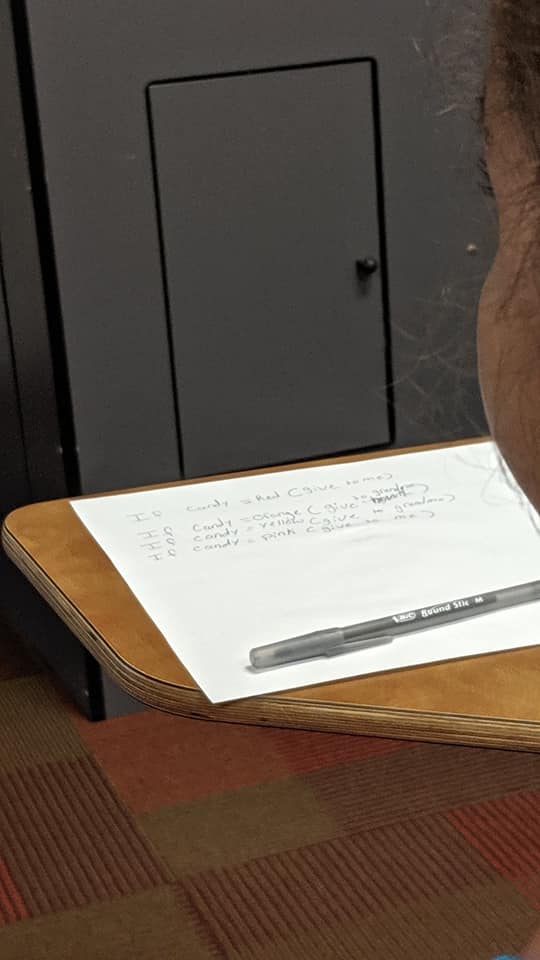 If candy = Red (give to me)
If candy = Orange (give to grandpa)
If candy = Yellow (give to grandma)
If candy = Pink (give to me)
BIC Round Stic M